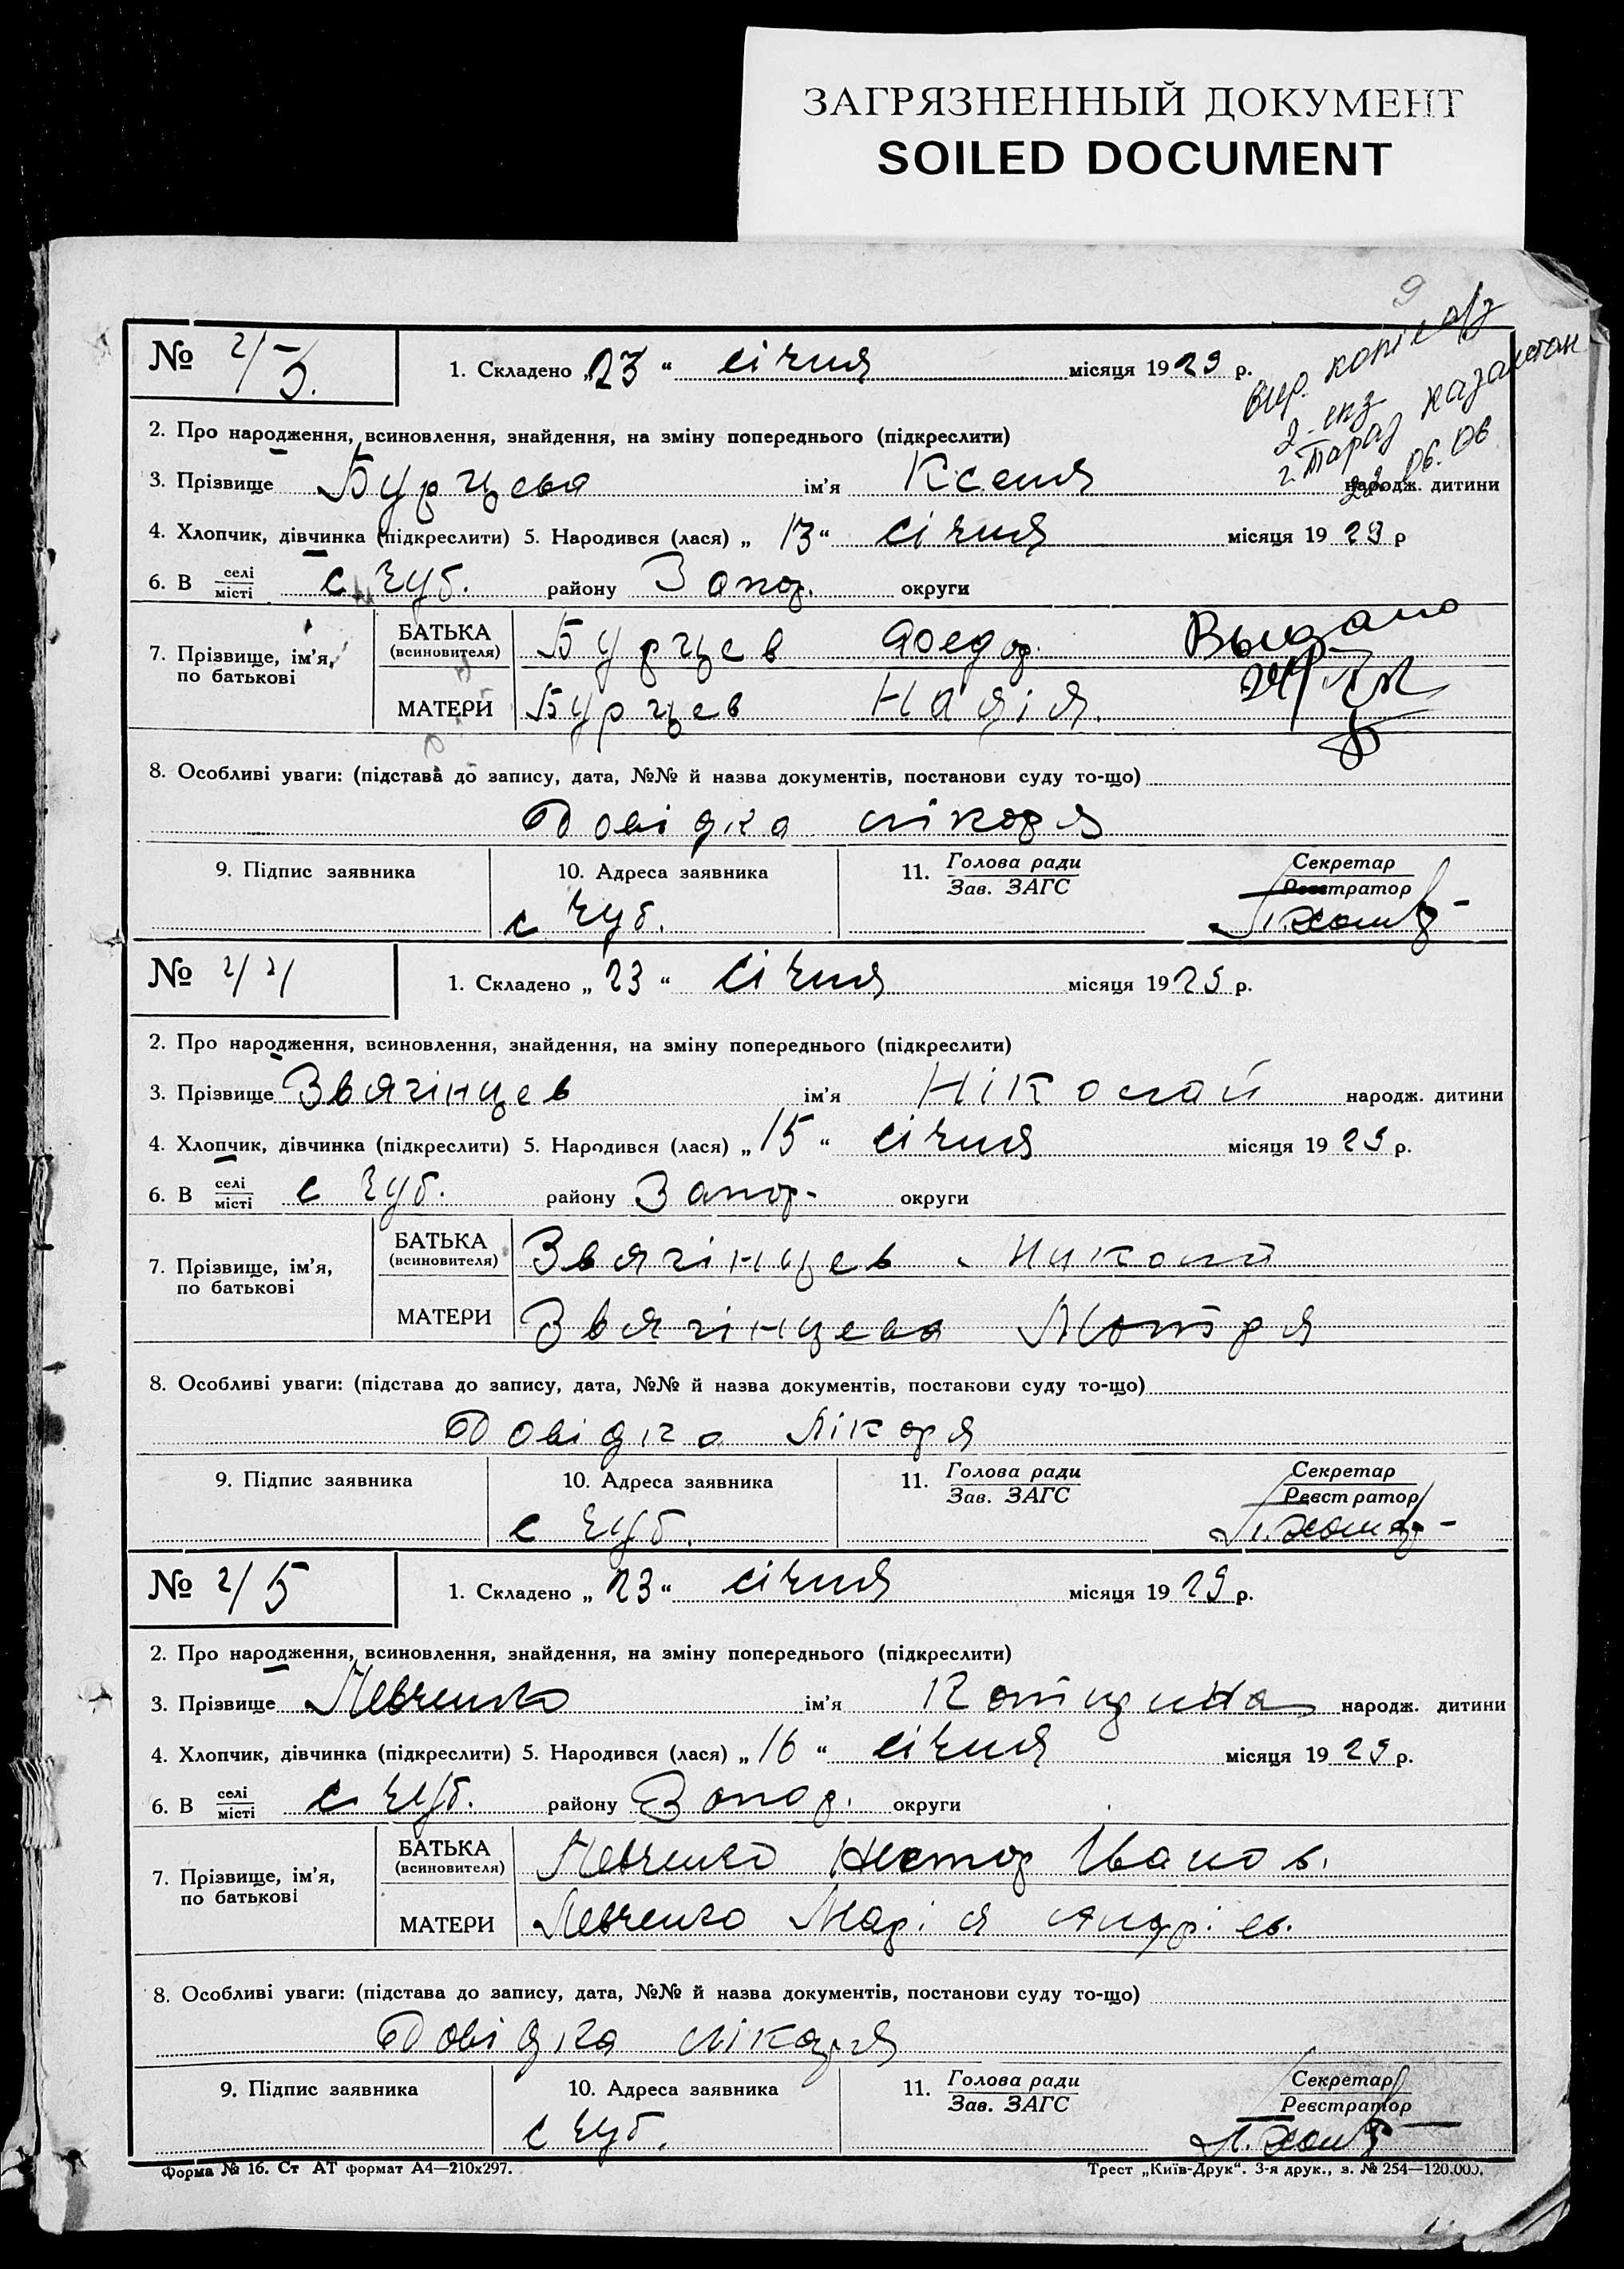 ЗАГРЯЗНЕННЫЙ ДОКУМЕНТ
SOILED DOCUMENT
9
№ 2/3. 1. Складено „23“ січня місяця 1929 р.
Вир. копія а/з
2. екз
г. Тараз Казахстан
22. 06. 06
2. Про народження, всиновлення, знайдення, на зміну попереднього (підкреслити)
3. Прізвище Бурцева ім'я Ксенія народж. дитини
4. Хлопчик, дівчинка (підкреслити) 5. Народився (лася) „13“ січня місяця 1929 р
6. В селі місті с Чуб. району Запор. округи
7. Прізвище, ім'я, по батькові
БАТЬКА (всиновителя) Бурцев Федор. Выдано
МАТЕРИ Бурцев
8. Особливі уваги: (підстава до запису, дата, №№ й назва документів, постанови суду то-що)
Довідка лікоря
9. Підпис заявника 10. Адреса заявника 11. Голова ради Зав. ЗАГС Секретар Реєстратор
с Чуб.
№ 2/4 1. Складено „23“ січня місяця 1929 р.
2. Про народження, всиновлення, знайдення, на зміну попереднього (підкреслити)
3. Прізвище Звягінцев ім'я Ніколай народж. дитини
4. Хлопчик, дівчинка (підкреслити) 5. Народився (лася) „15“ січня місяця 1929 р.
6. В селі місті с Чуб. району Запор. округи
7. Прізвище, ім'я, по батькові
БАТЬКА (всиновителя) Звягінцев Николй
МАТЕРИ Звягінцева Мотря
8. Особливі уваги: (підстава до запису, дата, №№ й назва документів, постанови суду то-що)
Довідка Лікоря
9. Підпис заявника 10. Адреса заявника 11. Голова ради Зав. ЗАГС Секретар Реєстратор
с Чуб.
№ 2/5 1. Складено „23“ січня місяця 1929 р.
2. Про народження, всиновлення, знайдення, на зміну попереднього (підкреслити)
3. Прізвище Левченко ім'я народж. дитини
4. Хлопчик, дівчинка (підкреслити) 5. Народився (лася) „16“ січня місяця 1929 р.
6. В селі місті с Чуб. району Запор. округи
7. Прізвище, ім'я, по батькові
БАТЬКА (всиновителя) Левченко Нестор Іванов.
МАТЕРИ Левченко Марія Андрієв.
8. Особливі уваги: (підстава до запису, дата, №№ й назва документів, постанови суду то-що)
Довідка лікаря
9. Підпис заявника 10. Адреса заявника 11. Голова ради Зав. ЗАГС Секретар Реєстратор
с Чуб.
Форма № 16. Ст АТ формат А4—210х297. Трест „Київ-Друк“. 3-я друк., з. № 254—120.000.